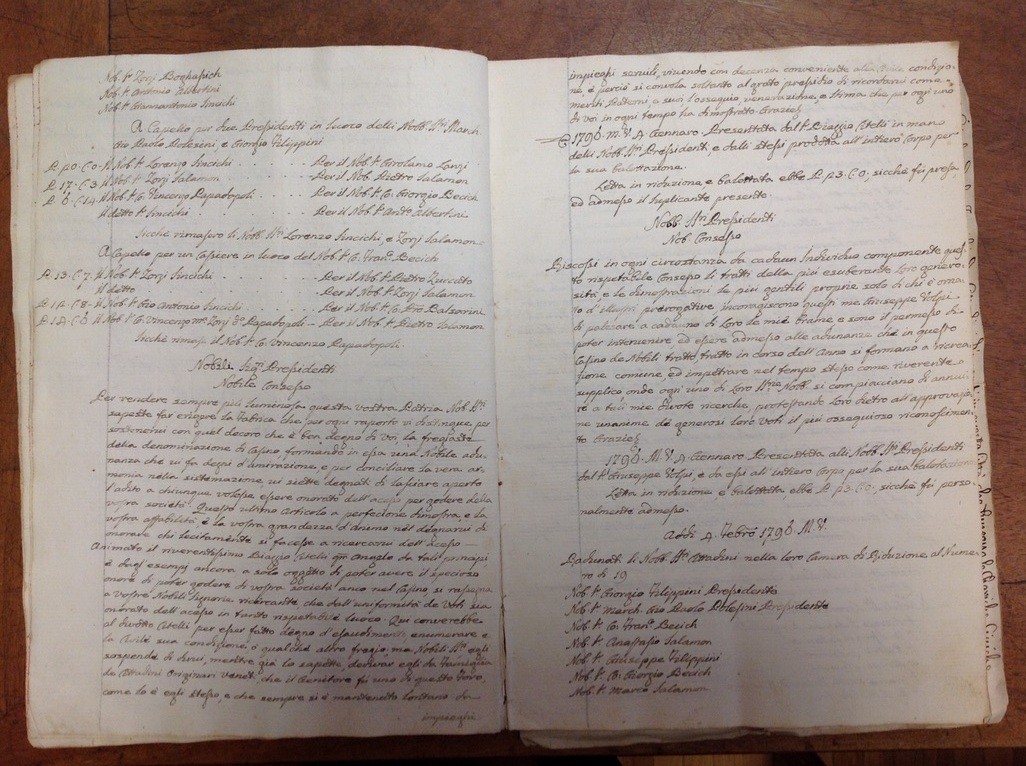 Nob. Sr. Zorzi Boghassich
Nob. Sr. Antonio Albertini
Nob. Sr. Gianantonio Sincichi
A Capello per due Pressidenti in luoco delli Nobb. Sri. March.
Gio Paolo Polesini, e Giorgio Filippini
Il Nob. Sr. Lorenzo Sincichi . . . . . . Per il Nob. Sr. Girolamo Zanzi
Il Nob. Sr. Zorzi Salamon . . . . . . Per il Nob. Sr. Pietro Salamon
Il Nob. Sr. C. Vincenzo Papadopoli . . . . Per il Nob. Sr. C. Giorgio Becich
Il detto Sr. Sincichi . . . . . . Per il Nob. Sr. Anto. Albertini
Sicchè rimasero li Nobb. Sri. Lorenzo Sincichi, e Zorzi Salamon
A Capello per un Cassiere in luoco del Nob. Sr. C. Frano. Becich
P. 13. C. 7. Il Nob. Sr. Zorzi Sincichi . . . . . Per il Nob. Sr. Pietro Zuccato
Il detto . . . . . . Per il Nob. Sr. Zorzi Salamon
Il Nob. Sr. Gio Antonio Sincichi . . . . Per il Nob. Sr. C. Gio. Balsarini
P. 14. C. 6 Il Nob. Sr. C. Vincenzo Papadopoli – Per il Nob. Sr. Pietro Salamon
Sicchè rimase il Nob. Sr. C. Vincenzo Papadopoli.
Nobili Sigri. Pressidenti
Nobile Consesso
Per rendere sempre più luminosa questa vostra Patria Nob. Sri.
sapeste far eriger la Fabrica che per ogni raporto vi distingue, per
sostenervi con quel decoro che è ben degno di voi, la fregiaste
della denominazione di Casino, formando in essa una Nobile adu-
nanza che vi fa degni d'amirazione, e per conciliare la vera ar-
monia nella sistemazione, vi siette degnati di lasciare aperto
l'adito a chiunque volesse essere onorato dell'acesso per godere della
vostra società. Questo ultimo Articolo a perfezione dimostra, e la
vostra affabilità, e la vostra grandezza d'animo nel degnarvi di
onorare chi lecitamente si facesse a ricercarvi dell'acesso –
Animato il riverentissimo Biaggio Stelli qm. Angelo da tali principj
e dagl'esempj ancora a solo oggetto di poter avere il specioso
onore di poter godere di vostra società anco nel Casino, si rasegna
a vostre Nobili Signorie ricercante che dall'uniformità de Voti sia
onorato dell'acesso in tanto rispettabile luoco. Qui converrebbe
al divotto Stelli per esser fatto degno d'esaudimento enumerare e
la Civile sua condizione, e qualche altro freggio, ma Nobili Sri. egli
sospende di farvi, mentre già lo sapette, derivar egli da Famiglia
de Cittadini Originari Veneti, che il Genitore fù uno di questo Foro,
come lo è egli stesso, e che sempre si è mantenuto lontano da
impieghi
impieghi servili, vivendo con decenza conveniente alla Civile condizio-
ne, e perciò si convola soltanto al grato pressidio di ricordarvi come
meriti l'ossequio, venerazione, e stima che per ogni uno
di voi in ogni tempo hà dimostrato. Grazie
1796. M.V. A Gennaro Presentata dal Sr. Biaggio Stelli in mano
delli Nobb. Sri. Pressidenti, e dalli stessi prodotta all'intiero Corpo per
la sua balottazione.
Letta in riduzione e balottata ebbe P. 23. C. 0, sicchè fù presa,
ed admesso il suplicante presente
Nobb. Sri. Pressidenti
Nob. Consesso
Riscossi in ogni circostanza da cadaun Individuo componente ques-
to rispetabile Consesso li tratti della più esuberante Loro genero-
sità, e le dimostrazioni le più gentili proprie solo di chi è orna-
to d'illustri prerogative incoragiscono questi me Giuseppe Volpi
di palesare a caduno di Loro le mie brame e sono il permesso di
poter intervenire ed essere admesso alle adunanze che in questo
Casino de Nobili tratto, tratto in corso dell'Anno si formano a ricrea-
zione comune, ed impetrare nel tempo stesso come riverente
supplico, onde ogni uno di Loro Illme. Nobb. si compiacciano di annui-
re a tali mie divote ricerche, protestando Loro dietro all'approvazio-
ne unanime de generosi Loro voti il più ossequioso riconoscimen-
to. Grazie
1796. M.V. A Gennaro Presentata alli Nobb. Sri. Pressidenti
dal Sr. Giuseppe Volpi, e da essi all'intiero Corpo per la sua balottazione
Letta in riduzione e balottata ebbe P. 23. C. 0, sicchè fù perso-
nalmente admesso.
Addi 4. Febro. 1796 M.V.
Radunati li Nobb. Sri. Cittadini nella loro Camera di Riduzione al Nume-
ro di 19
Nob. Sr. Giorgio Filippini Pressidente
Nob. Sr. March. Gio Paolo Polesini Pressidente
Nob. Sr. C. Frano. Becich
Nob. Sr. Anastasio Salamon
Nob. Sr. Giuseppe Filippini
Nob. Sr. C. Giorgio Becich
Nob. Sr. Marco Salamon